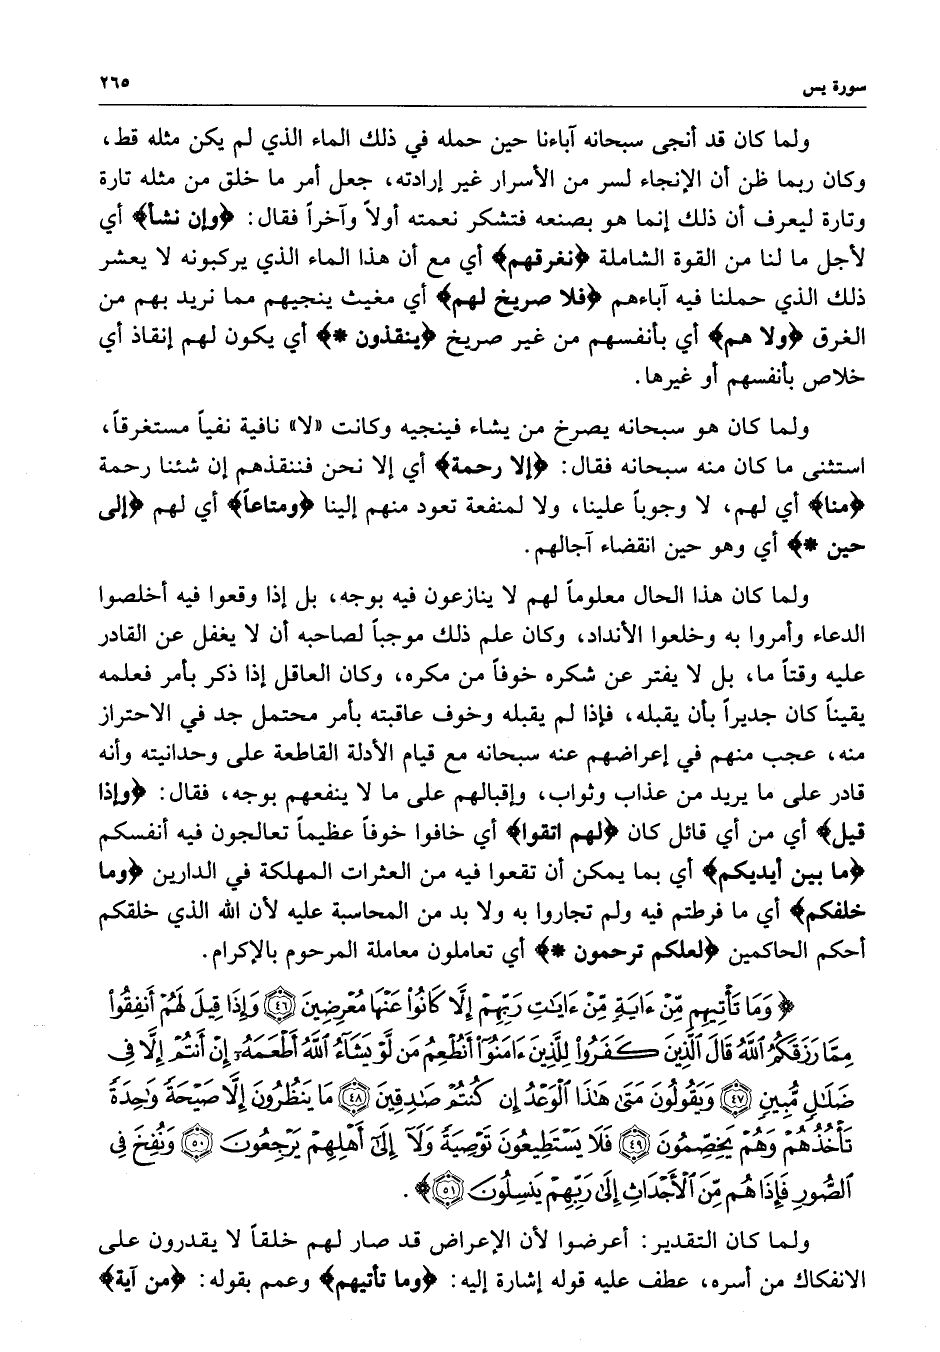 سورة يس ٢٦٥
ولما كان قد أنجى سبحانه آباءنا حين حمله في ذلك الماء الذي لم يكن مثله قط،
وكان ربما ظن أن الإنجاء لسر من الأسرار غير إرادته، جعل أمر ما خلق من مثله تارة
وتارة ليعرف أن ذلك إنما هو بصنعه فتشكر نعمته أولاً وآخراً فقال: ﴿وإن نشأ﴾ أي
لأجل ما لنا من القوة الشاملة ﴿نغرقهم﴾ أي مع أن هذا الماء الذي يركبونه لا يعشر
ذلك الذي حملنا فيه آباءهم ﴿فلا صريخ لهم﴾ أي مغيث ينجيهم مما نريد بهم من
الغرق ﴿ولا هم﴾ أي بأنفسهم من غير صريخ ﴿ينقذون *﴾ أي يكون لهم إنقاذ أي
خلاص بأنفسهم أو غيرها.
ولما كان هو سبحانه يصرخ من يشاء فينجيه وكانت «لا» نافية نفياً مستغرقاً،
استثنى ما كان منه سبحانه فقال: ﴿إلا رحمة﴾ أي إلا نحن فننقذهم إن شئنا رحمة
﴿منا﴾ أي لهم، لا وجوباً علينا، ولا لمنفعة تعود منهم إلينا ﴿ومتاعاً﴾ أي لهم ﴿إلى
حين *﴾ أي وهو حين انقضاء آجالهم.
ولما كان هذا الحال معلوماً لهم لا ينازعون فيه بوجه، بل إذا وقعوا فيه أخلصوا
الدعاء وأمروا به وخلعوا الأنداد، وكان علم ذلك موجباً لصاحبه أن لا يغفل عن القادر
عليه وقتاً ما، بل لا يفتر عن شكره خوفاً من مكره، وكان العاقل إذا ذكر بأمر فعلمه
يقيناً كان جديراً بأن يقبله، فإذا لم يقبله وخوف عاقبته بأمر محتمل جد في الاحتراز
منه، عجب منهم في إعراضهم عنه سبحانه مع قيام الأدلة القاطعة على وحدانيته وأنه
قادر على ما يريد من عذاب وثواب، وإقبالهم على ما لا ينفعهم بوجه، فقال: ﴿وإذا
قيل﴾ أي من أي قائل كان ﴿لهم اتقوا﴾ أي خافوا خوفاً عظيماً تعالجون فيه أنفسكم
﴿ما بين أيديكم﴾ أي بما يمكن أن تقعوا فيه من العثرات المهلكة في الدارين ﴿وما
خلفكم﴾ أي ما فرطتم فيه ولم تجاروا به ولا بد من المحاسبة عليه لأن الله الذي خلقكم
أحكم الحاكمين ﴿لعلكم ترحمون *﴾ أي تعاملون معاملة المرحوم بالإكرام.
﴿وَمَا تَأْتِيهِم مِّنْ ءَايَةٍ مِّنْ ءَايَٰتِ رَبِّهِمْ إِلَّا كَانُوا۟ عَنْهَا مُعْرِضِينَ ٤٦ وَإِذَا قِيلَ لَهُمْ أَنفِقُوا۟
مِمَّا رَزَقَكُمُ ٱللَّهُ قَالَ ٱلَّذِينَ كَفَرُوا۟ لِلَّذِينَ ءَامَنُوٓا۟ أَنُطْعِمُ مَن لَّوْ يَشَآءُ ٱللَّهُ أَطْعَمَهُۥٓ إِنْ أَنتُمْ إِلَّا فِى
ضَلَٰلٍ مُّبِينٍ ٤٧ وَيَقُولُونَ مَتَىٰ هَٰذَا ٱلْوَعْدُ إِن كُنتُمْ صَٰدِقِينَ ٤٨ مَا يَنظُرُونَ إِلَّا صَيْحَةً وَٰحِدَةً
تَأْخُذُهُمْ وَهُمْ يَخِصِّمُونَ ٤٩ فَلَا يَسْتَطِيعُونَ تَوْصِيَةً وَلَآ إِلَىٰٓ أَهْلِهِمْ يَرْجِعُونَ ٥٠ وَنُفِخَ فِى
ٱلصُّورِ فَإِذَا هُم مِّنَ ٱلْأَجْدَاثِ إِلَىٰ رَبِّهِمْ يَنسِلُونَ ٥١﴾.
ولما كان التقدير: أعرضوا لأن الإعراض قد صار لهم خلقاً لا يقدرون على
الانفكاك من أسره، عطف عليه قوله إشارة إليه: ﴿وما تأتيهم﴾ وعمم بقوله: ﴿من آية﴾